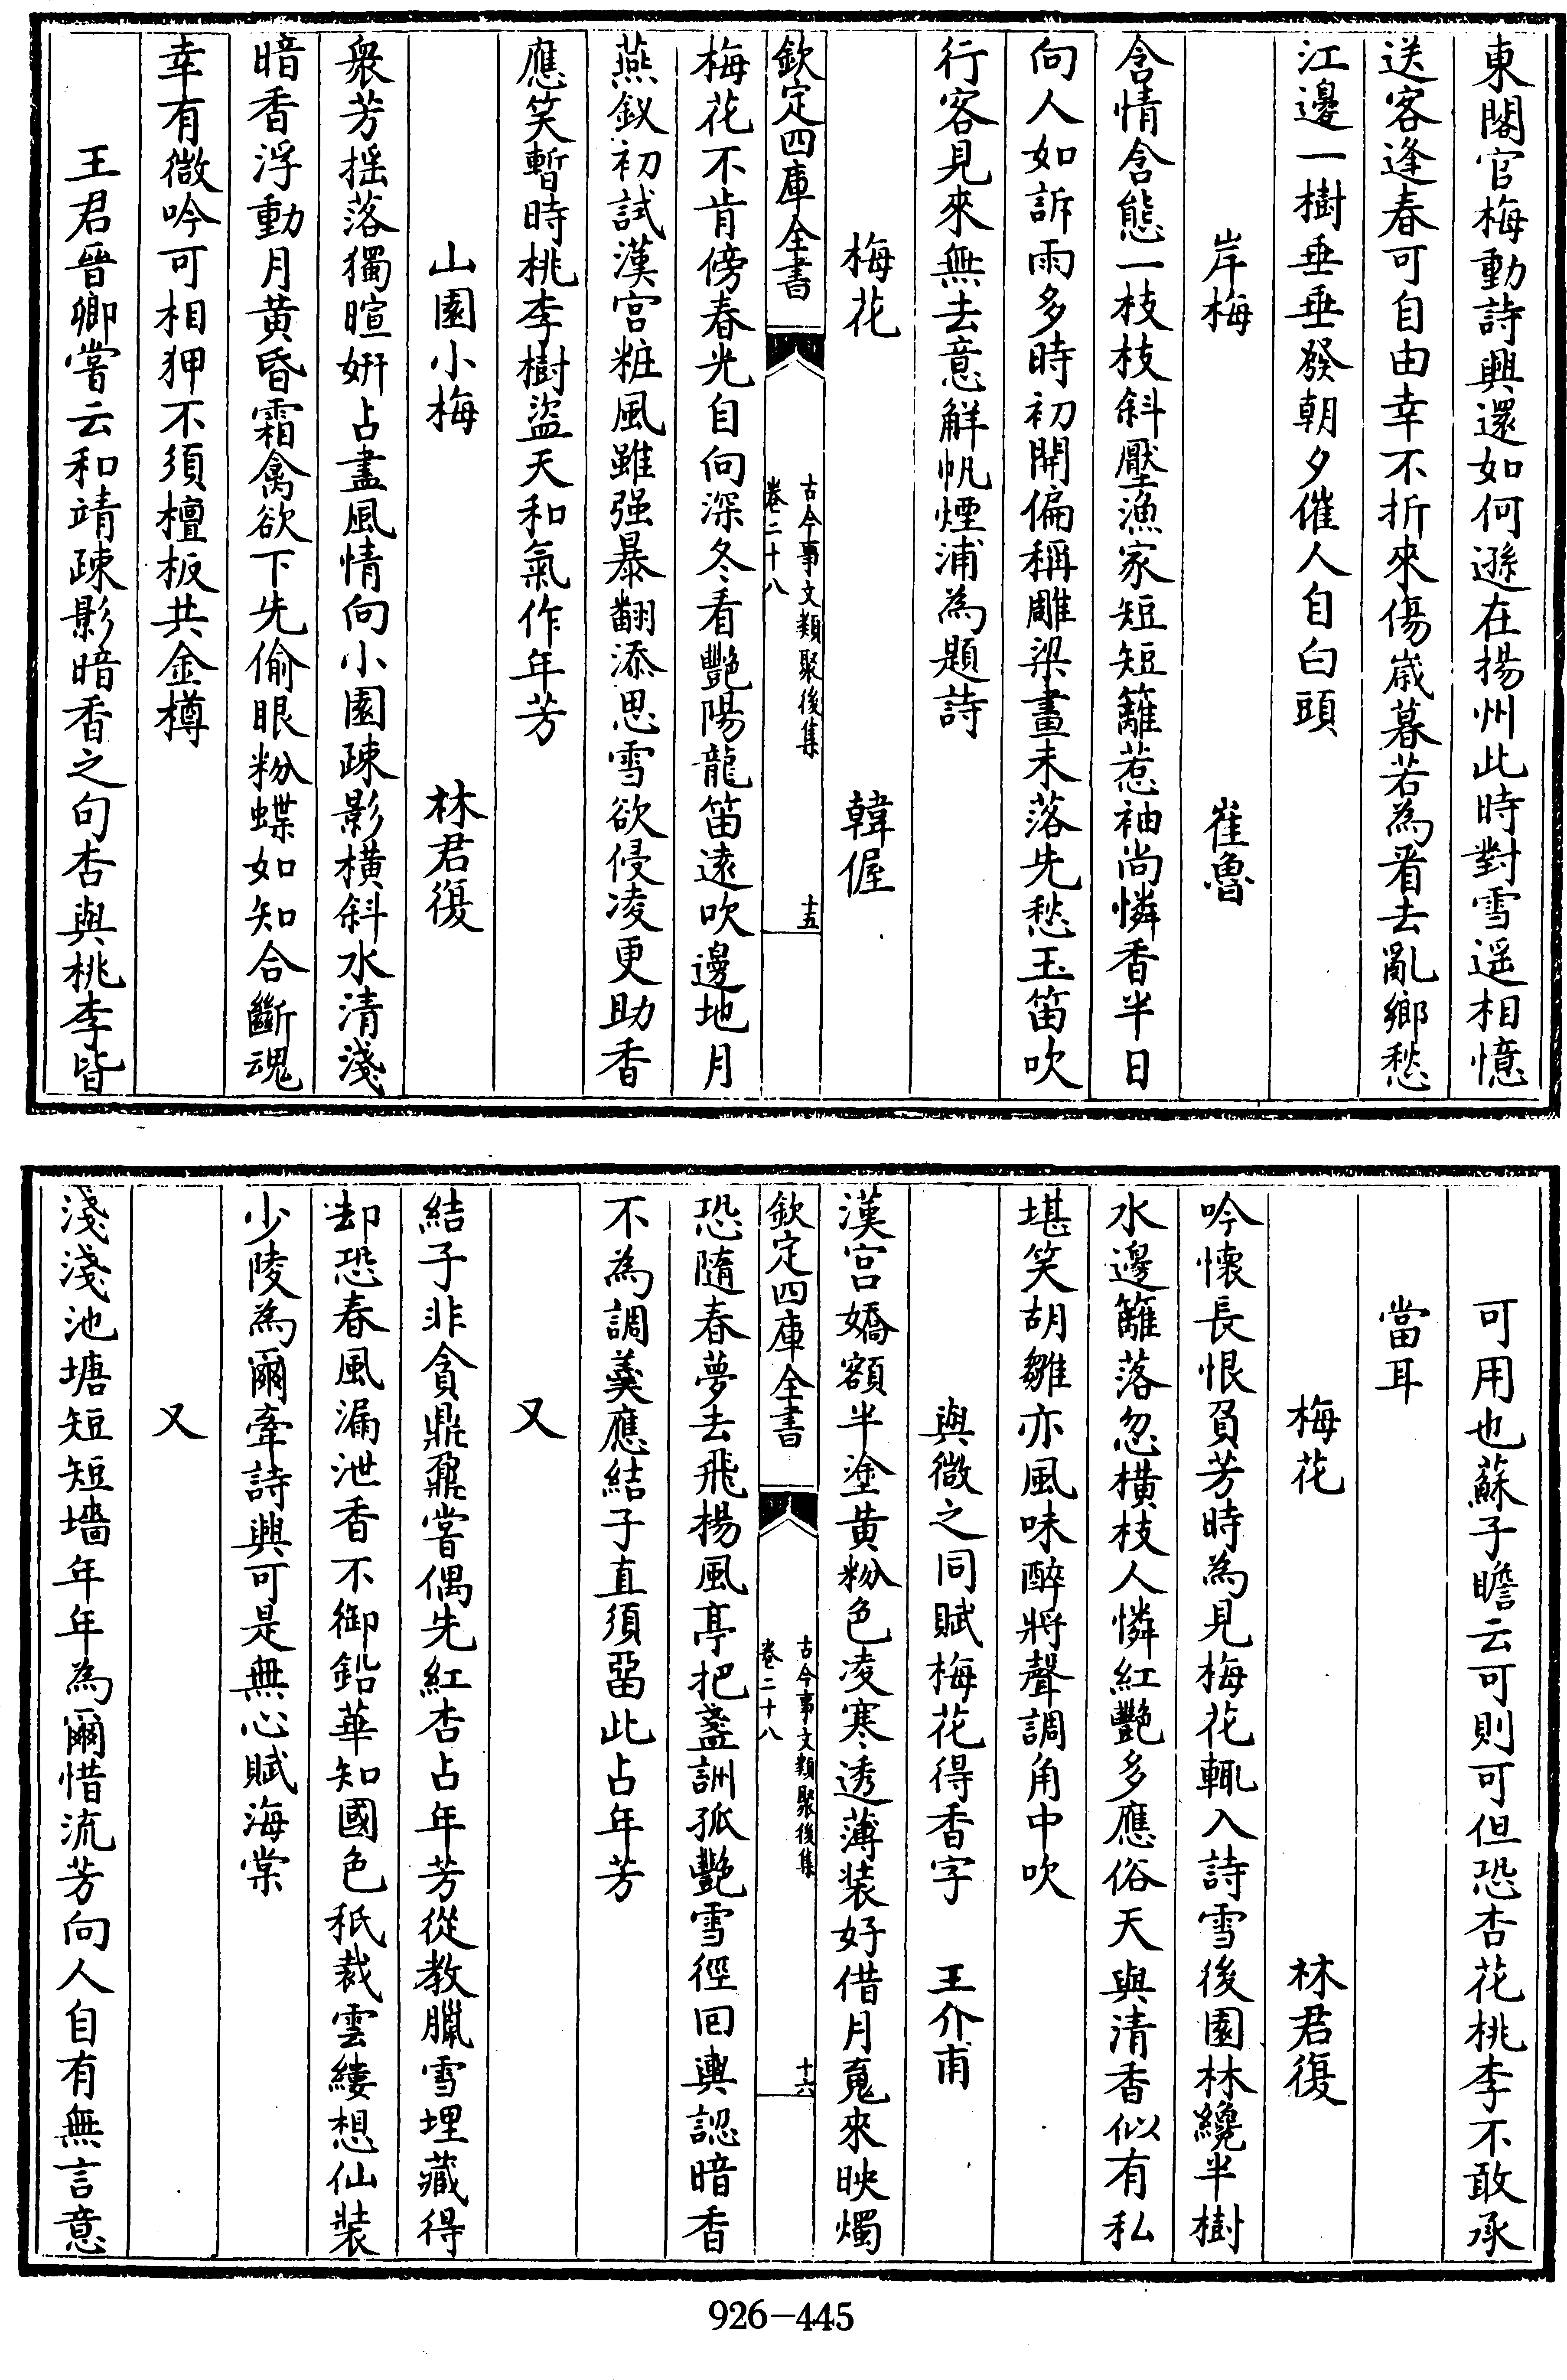 東閣官梅動詩興還如何遜在揚州此時對雪遥相憶
送客逢春可自由幸不折來傷嵗暮若為看去亂鄉愁
江邊一樹垂垂發朝夕催人自白頭
岸梅 崔魯
含情含態一枝枝斜壓漁家短短籬惹袖尚憐香半日
向人如訴雨多時初開偏稱雕梁畫未落先愁玉笛吹
行客見來無去意解帆煙浦為題詩
梅花 韓偓
欽定四庫全書 古今事文類聚後集 卷二十八 十五
梅花不肯傍春光自向深冬看艷陽龍笛遠吹邊地月
燕釵初試漢宫粧風雖强暴翻添思雪欲侵凌更助香
應笑暫時桃李樹盜天和氣作年芳
山園小梅 林君復
衆芳揺落獨暄妍占盡風情向小園疎影横斜水清淺
暗香浮動月黄昏霜禽欲下先偷眼粉蝶如知合斷魂
幸有微吟可相狎不須檀板共金樽
王君晉卿嘗云和靖疎影暗香之句杏與桃李皆
可用也蘇子瞻云可則可但恐杏花桃李不敢承
當耳
梅花 林君復
吟懷長恨負芳時為見梅花輒入詩雪後園林纔半樹
水邊籬落忽横枝人憐紅艷多應俗天與清香似有私
堪笑胡雛亦風味醉將聲調角中吹
與微之同賦梅花得香字 王介甫
漢宫嬌額半塗黄粉色凌寒透薄装好借月䰟來映燭
欽定四庫全書 古今事文類聚後集 卷二十八 十六
恐隨春夢去飛楊風亭把盞詶孤艷雪徑回輿認暗香
不為調羮應結子直須留此占年芳
又
結子非貪鼎鼐嘗偶先紅杏占年芳從教臘雪埋藏得
却恐春風漏泄香不御鉛華知國色秖裁雲縷想仙装
少陵為爾牽詩興可是無心賦海棠
又
淺淺池塘短短墻年年為爾惜流芳向人自有無言意
926-445